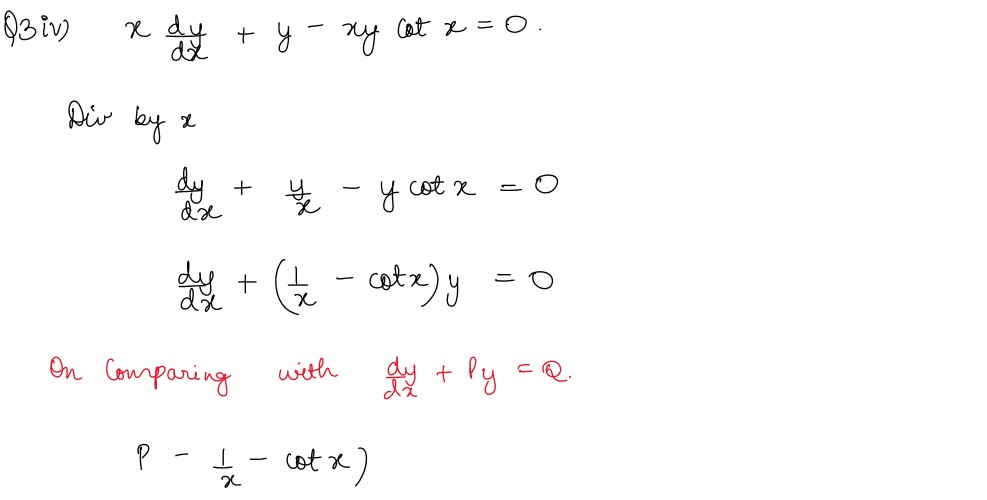 Q3iv) x dy/dx + y - xy cot x = 0.
Div by x
dy/dx + y/x - y cot x = 0
dy/dx + (1/x - cot x) y = 0
On Comparing with dy/dx + Py = Q.
P - 1/x - cot x)